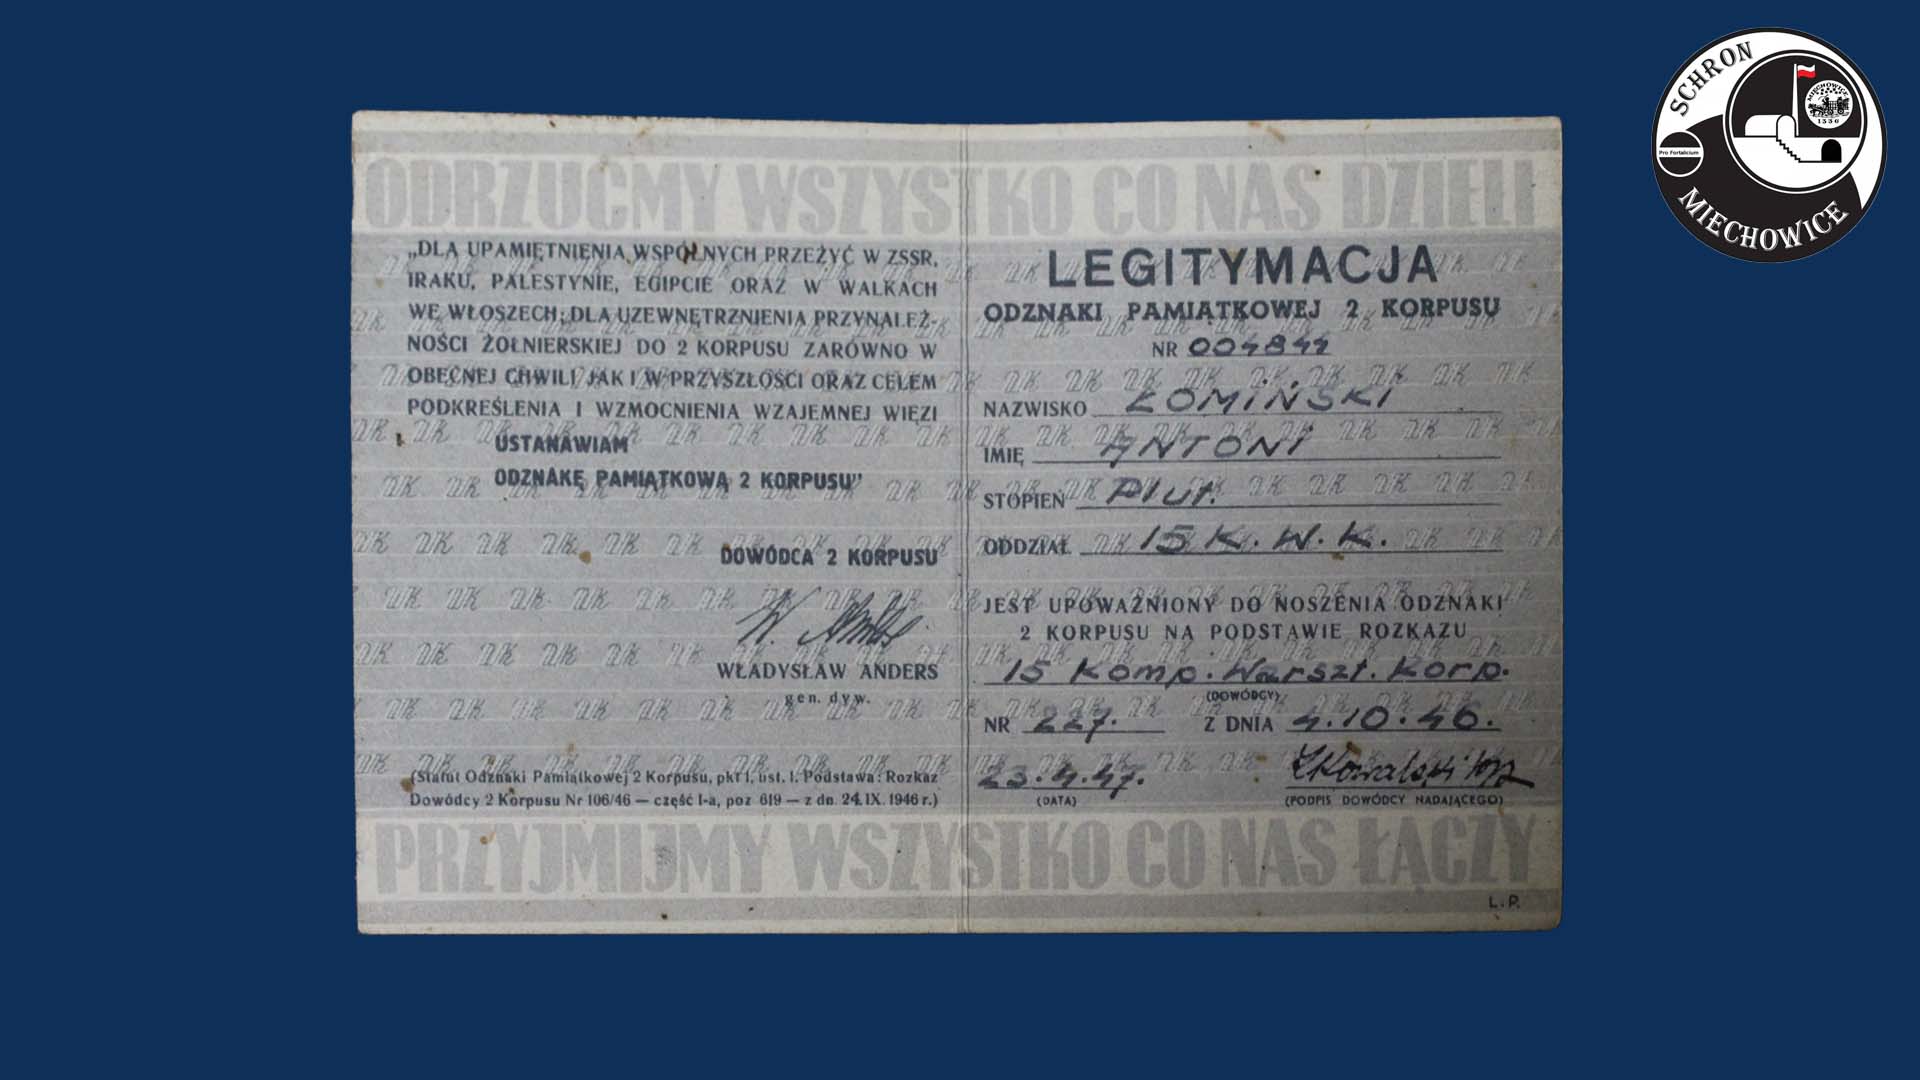 SCHRON
MIECHOWICE
1336
Pro Fortalicium
MIECHOWICE
ODRZUĆMY WSZYSTKO CO NAS DZIELI
„DLA UPAMIĘTNIENIA WSPÓLNYCH PRZEŻYĆ W ZSSR,
IRAKU, PALESTYNIE, EGIPCIE ORAZ W WALKACH
WE WŁOSZECH; DLA UZEWNĘTRZNIENIA PRZYNALEŻ-
NOŚCI ŻOŁNIERSKIEJ DO 2 KORPUSU ZARÓWNO W
OBECNEJ CHWILI JAK I W PRZYSZŁOŚCI ORAZ CELEM
PODKREŚLENIA I WZMOCNIENIA WZAJEMNEJ WIĘZI
USTANAWIAM
ODZNAKĘ PAMIĄTKOWĄ 2 KORPUSU”
DOWÓDCA 2 KORPUSU
W. Anders
WŁADYSŁAW ANDERS
gen. dyw.
(Statut Odznaki Pamiątkowej 2 Korpusu, pkt 1, ust. 1. Podstawa: Rozkaz
Dowódcy 2 Korpusu Nr 106/46 — część I-a, poz 619 — z dn. 24.IX.1946 r.)
LEGITYMACJA
ODZNAKI PAMIĄTKOWEJ 2 KORPUSU
NR 004844
NAZWISKO ŁOMIŃSKI
IMIĘ ANTONI
STOPIEŃ Plut.
ODDZIAŁ 15 K. W. K.
JEST UPOWAŻNIONY DO NOSZENIA ODZNAKI
2 KORPUSU NA PODSTAWIE ROZKAZU
15 Komp. Warszt. Korp.
(DOWÓDCY)
NR 227. Z DNIA 4.10.46.
23.4.47. Kowalski
(DATA) (PODPIS DOWÓDCY NADAJĄCEGO)
PRZYJMIJMY WSZYSTKO CO NAS ŁĄCZY
L.P.